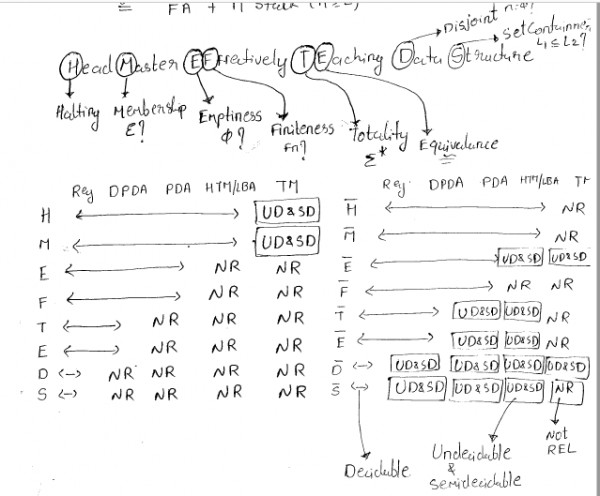 = FA + 11 Stack
Disjoint
Set Containment
L1 ≤ L2?
Head Master EEffectively TEaching Data Structure
Halting Membership Emptiness Finiteness Totality Equivalance
E? Φ? Fn? Σ*
Reg DPDA PDA HTM/LBA TM
H ⟷ UD&SD
M ⟷ UD&SD
E ⟷ NR NR
F ⟷ NR NR
T ⟷ NR NR NR
E ⟷ NR NR NR
D <-> NR NR NR NR
S <-> NR NR NR NR
Reg DPDA PDA HTM/LBA TM
H̅ ⟷ NR
M̅ ⟷ NR
E̅ ⟷ UD&SD UD&SD
F̅ ⟷ NR NR
T̅ ⟷ UD&SD UD&SD NR
E̅ ⟷ UD&SD UD&SD NR
D̅ <-> UD&SD UD&SD UD&SD UD&SD
S̅ <-> UD&SD UD&SD UD&SD NR
Decidable
Undecidable
&
Semidecidable
Not
REL